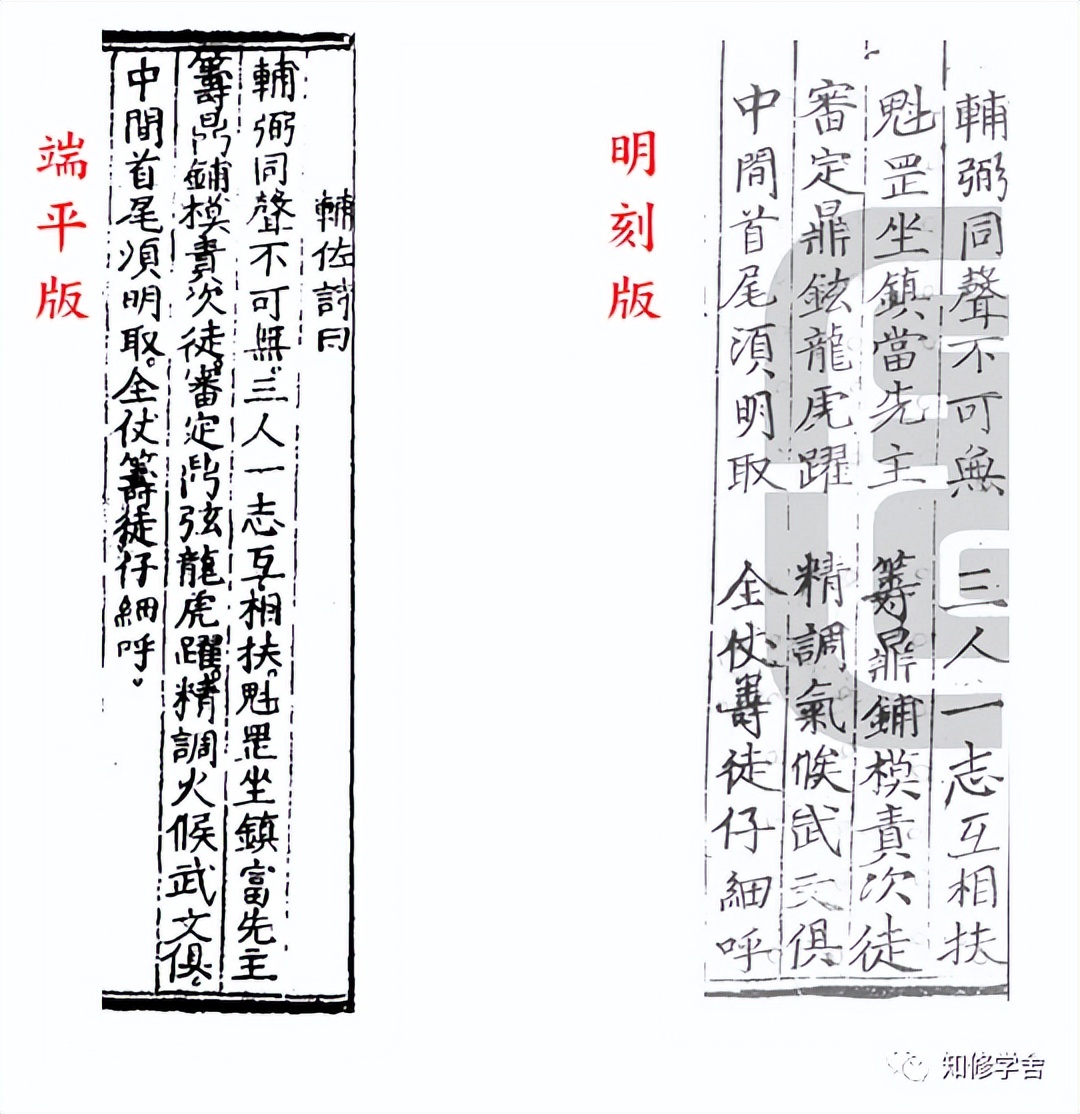 端平版
輔佐詩曰
輔弼同聲不可無三人一志互相扶魁罡坐鎮富先主
籌鼎鋪模責次徒審定鼎弦龍虎躍精調火候武文俱
中間首尾須明取全仗籌徒仔細呼
明刻版
輔弼同聲不可無 三人一志互相扶
魁罡坐鎮當先主 籌鼎鋪模責次徒
審定鼎鉉龍虎躍 精調氣候武文俱
中間首尾須明取 全仗籌徒仔細呼
知修学舍